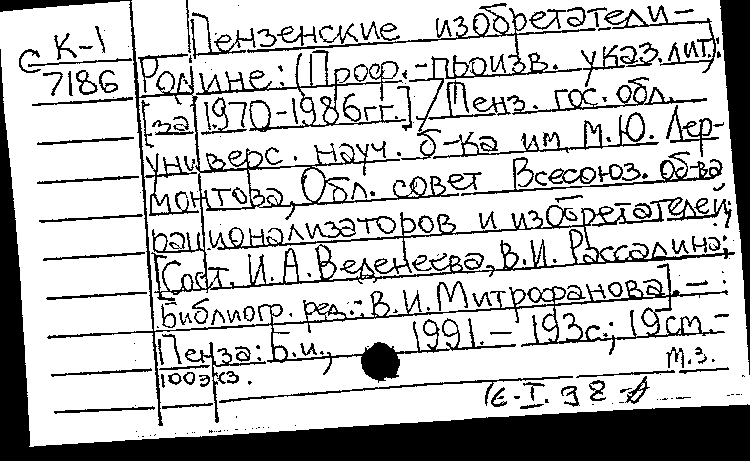 С К-1
7186
Пензенские изобретатели-
Родине: (Проф.-произв. указ. лит.):
[за 1970-1986гг.] / Пенз. гос. обл.
универс. науч. б-ка им. М.Ю. Лер-
монтова, Обл. совет Всесоюз. об-ва
рационализаторов и изобретателей;
[Сост. И.А.Веденеева, В.И. Рассалина;
Библиогр. ред.: В.И.Митрофанова]. - :
Пенза: Б.и., 1991. - 193с.; 19см. -
100экз. М.З.